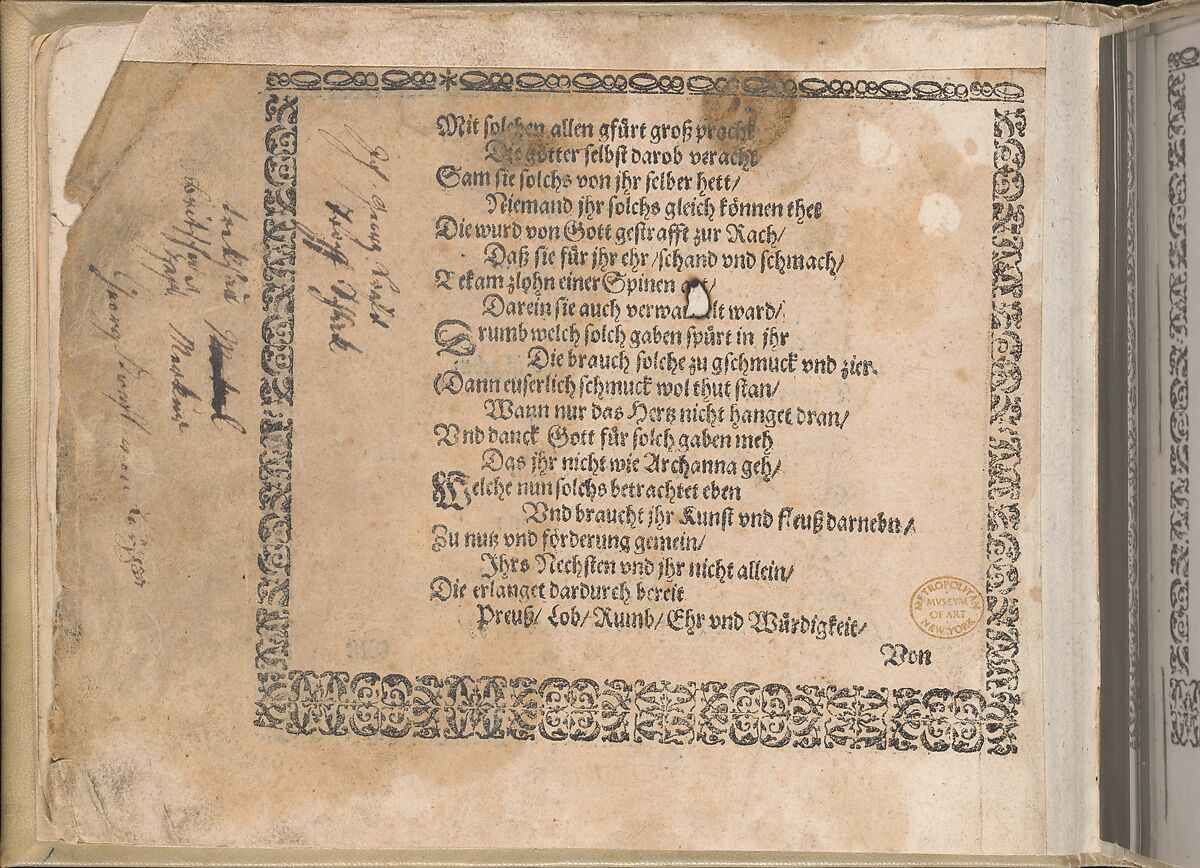 Mit solchen allen gfürt groß pracht
Die götter selbst darob veracht
Sam sie solchs von jhr selber hett/
Niemand jhr solchs gleich können thet
Die wurd von Gott gestrafft zur Rach/
Daß sie für jhr ehr/schand vnd schmach/
Bekam zlohn einer Spinen art/
Darein sie auch verwandlt ward/
Drumb welch solch gaben spürt in jhr
Die brauch solche zu gschmuck vnd zier.
(Dann euserlich schmuck wol thut stan/
Wann nur das Hertz nicht hanget dran/
Vnd danck Gott für solch gaben meh
Das jhr nicht wie Archanna geh/
Welche nun solchs betrachtet eben
Vnd braucht jhr Kunst vnd fleuß darnebn/
Zu nutz vnd förderung gemein/
Ihrs Nechsten vnd jhr nicht allein/
Die erlanget dardurch bereit
Preuß/ Lob/ Rumb/ Ehr vnd Würdigkeit/
Von
METROPOLITAN
MVSEVM
OF ART
NEW YORK